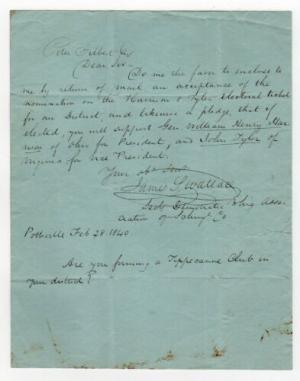 Peter Filbert Esq
Dear Sir.
Do me the favor to enclose to
me by return of mail an acceptance of the
nomination on the Harrison & Tyler electoral ticket
for our District, and likewise a pledge, that if
elected, you will support Gen William Henry Har
of Ohio for President, and John Tyler of
Virginia for vice President.
Your obt Servt
James S. Wallace
Secty Democratic Whig Asso-
ciation of Schuyl Co
Pottsville Feb 28. 1840
Are you forming a Tippecanoe Club in
your district?